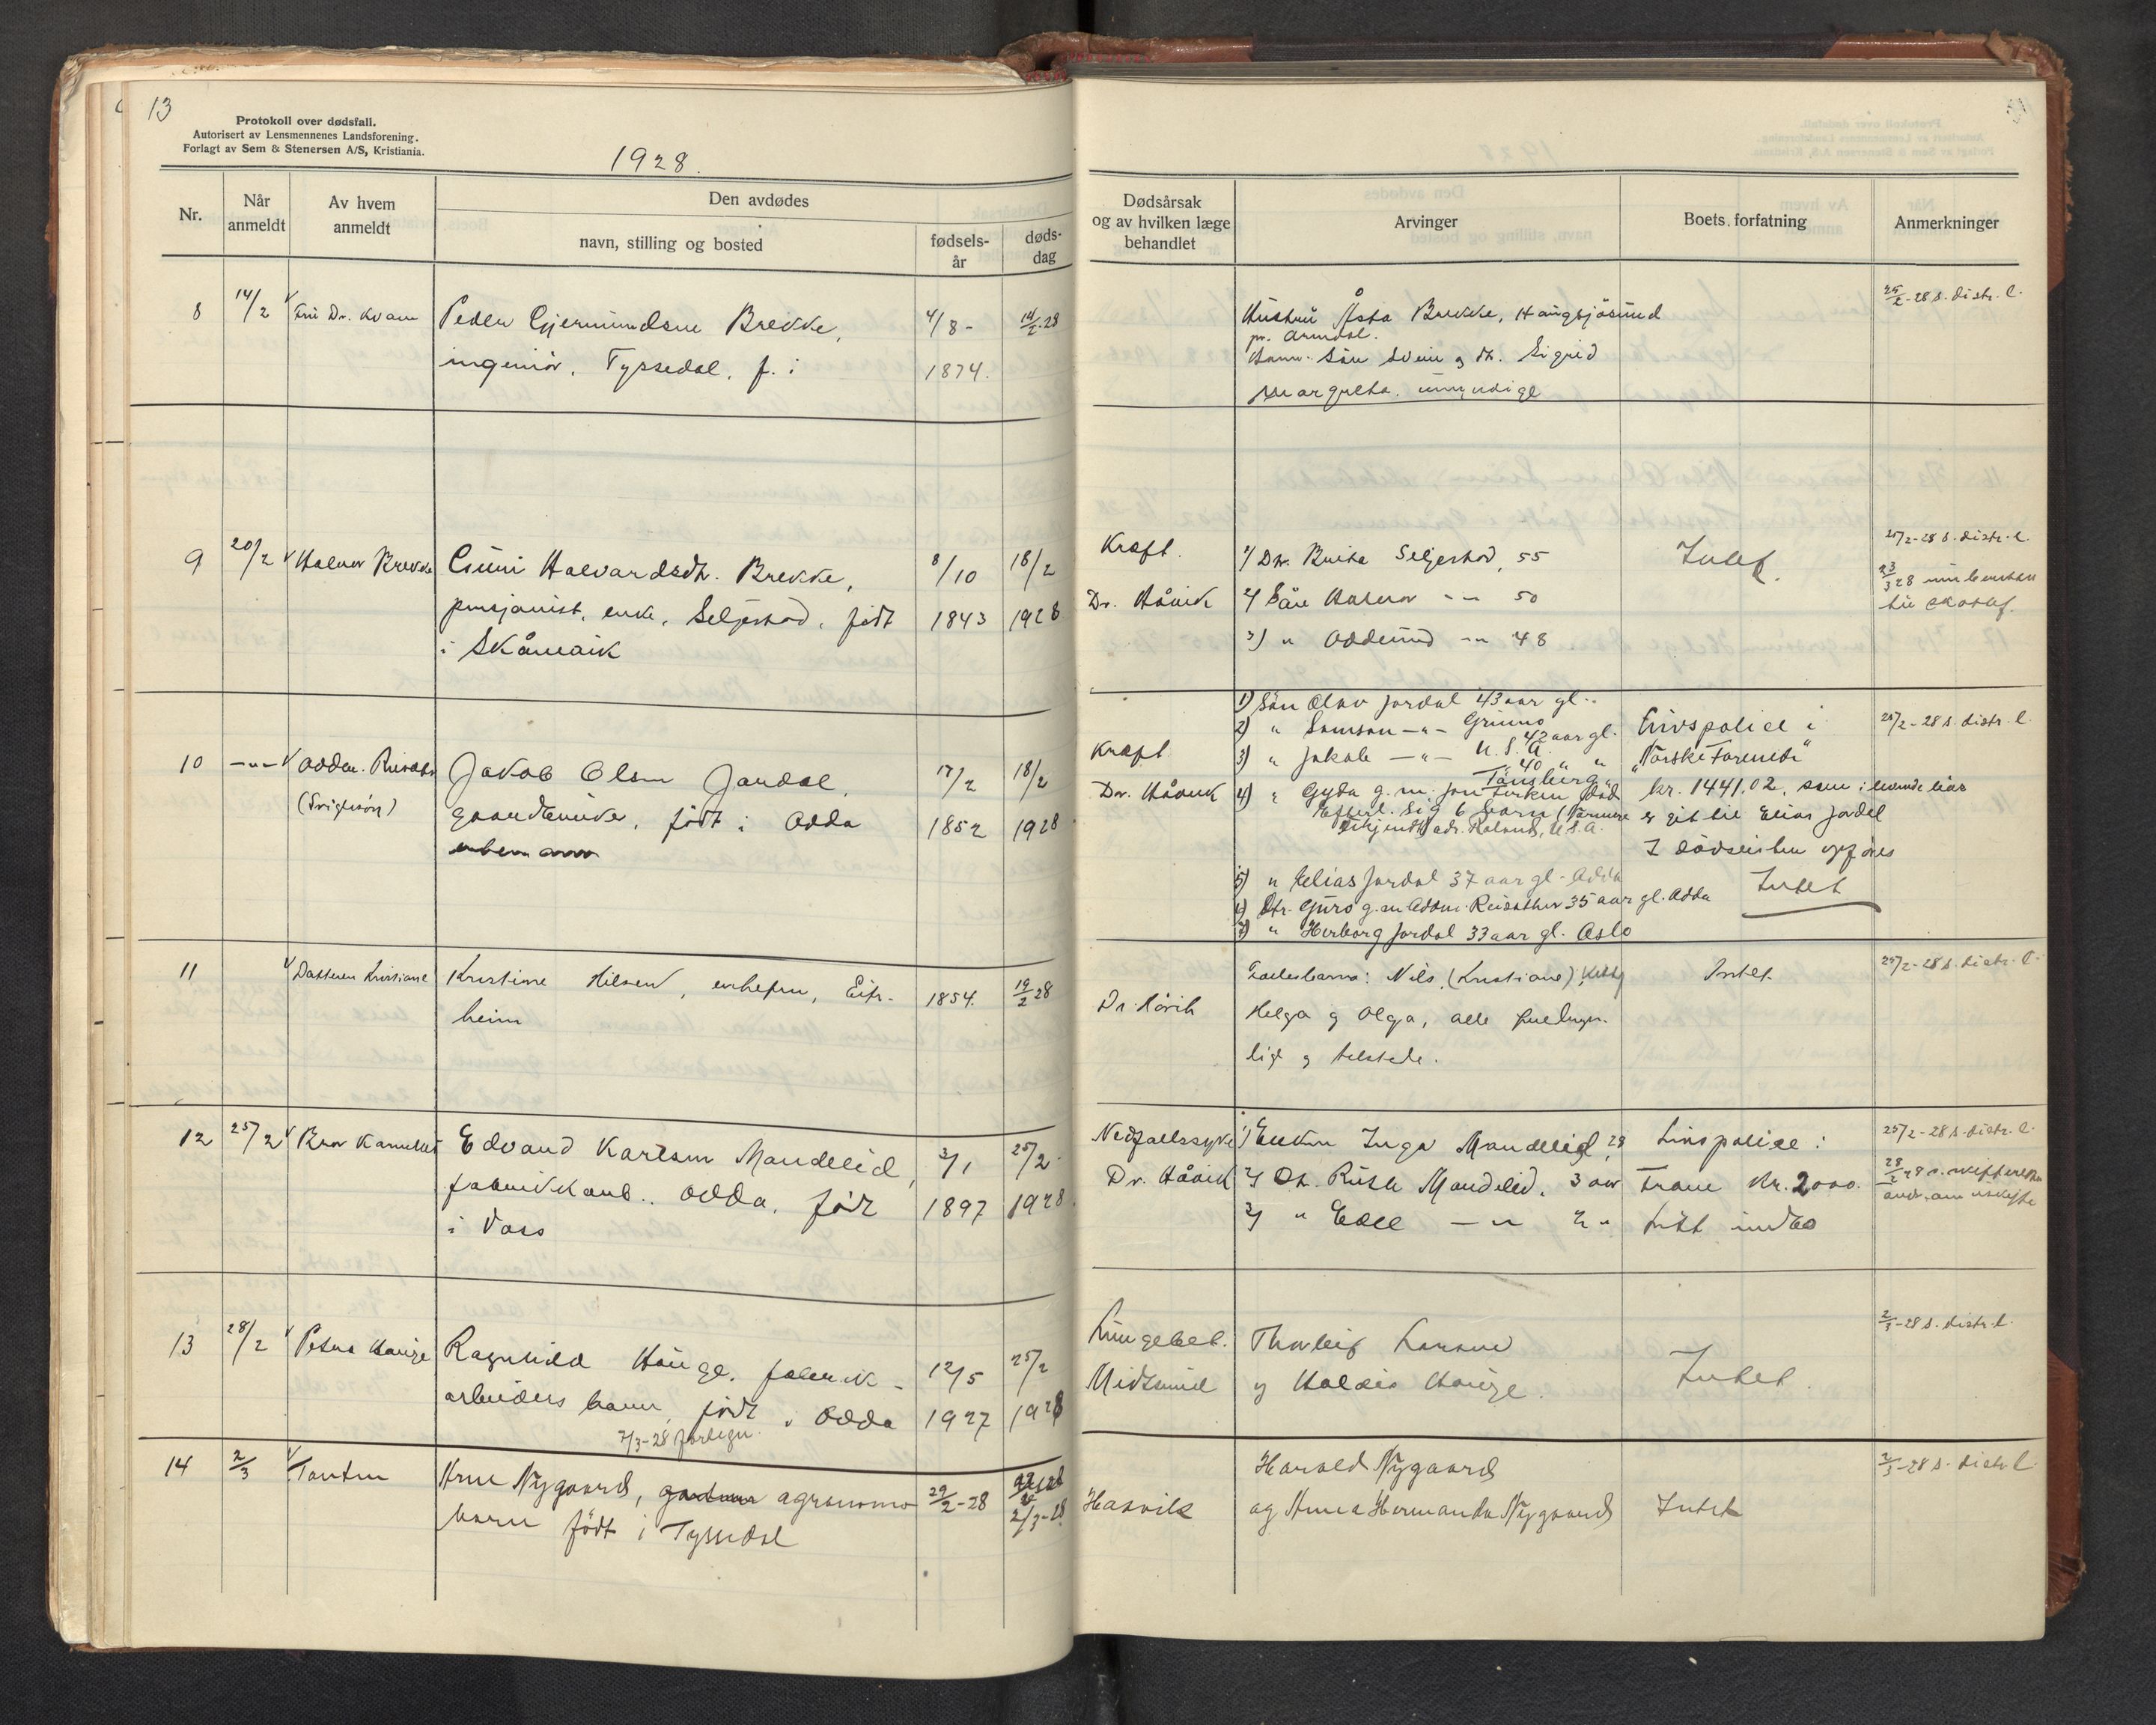 13
Protokoll over dødsfall.
Autorisert av Lensmennenes Landsforening.
Forlagt av Sem & Stenersen A/S, Kristiania.
1928.
Nr.
Når anmeldt
Av hvem anmeldt
Den avdødes
navn, stilling og bosted
fødsels-år
døds-dag
Dødsårsak og av hvilken læge behandlet
Arvinger
Boets forfatning
Anmerkninger
8 14/2 Fru Dr. Kvam Peder Gjermundsen Brekke, 4/8- 14/2 28
ingeniør, Tyssedal, f. i 1874.
Hustru Åsta Brekke,
pr. Arendal.
Barn: Sön Svein og dtr. Sigrid
Margretha, umyndige
25/2-28 s. distr. l.
9 20/2 Halvor Brekke Guni Halvardsdtr. Brekke, 8/10 18/2
pensjonist, enke, Seljestad, født 1843 1928
i Skånevik
Kræft.
Dr. Håvik
1) Dtr. Brita Seljestad, 55
2) Sön Halvor -"- 50
3) " Oddmund -"- 48
Intet.
25/2-28 s. distr. l.
23/3 28
10 -"- Oddm. Reisæter Jakob Olsen Jordal, 17/2 18/2
gaardbruker, født i Odda 1852 1928
Kræft
Dr. Håvik
1) Sön Olav Jordal 43 aar gl.
2) " Samson -"- 42 aar gl.
3) " Jakob -"- U.S.A. 40 " "
4) " Gyda g. m. Jon død
Efterl. sig 6 barn
adr. Roland, U.S.A.
5) " Elias Jordal 37 aar gl. Odda
6) Dtr. Guro g. m. Oddm. Reisæther 35 aar gl. Odda
7) " Herborg Jordal 33 aar gl. Oslo
Livspolice i
"Norske Forenede"
kr. 1441,02, som i
er git til Elias Jordal
I opføres
Intet
25/2-28 s. distr. l.
11 Datteren Kristiane Kristine Nilsen, Eitr- 1854. 19/2 28
heim
Dr. Håvik
Fællesbarn: Nils, (Kristiane),
Helga og Olga, alle fuldmyn-
dig og tilstede.
Intet.
25/2-28 s. distr. l.
12 25/2 Bror Edvard Karlsen Mandelid, 3/1 25/2
fabrikkarb., Odda, født 1897 1928
i Voss
Nedfallssyke
Dr. Håvik
1) Enken Inga Mandelid, 28
2) Dt. Ruth Mandelid, 3 aar
3) " Edel -"- 2 "
Livspolice i
Fram kr. 2000.
Litt indbo
25/2-28 s. distr. l.
28/2 28
13 28/2 Peder Hauge Ragnhild Hauge, fabrik- 12/5 25/2
arbeiders barn, født i Odda 1927 1928
Lungebet.
Midtsund
Thorleif Larsen
og Haldis Hauge.
Intet.
2/3-28 s. distr. l.
2/3-28
14 2/3 Tanten Arne Nygaard, agronoms 29/2-28 2/3-28
barn født i Tyssedal
Hasvik
Harald Nygaard
og Anna Hermanda Nygaard
Intet
2/3-28 s. distr. l.